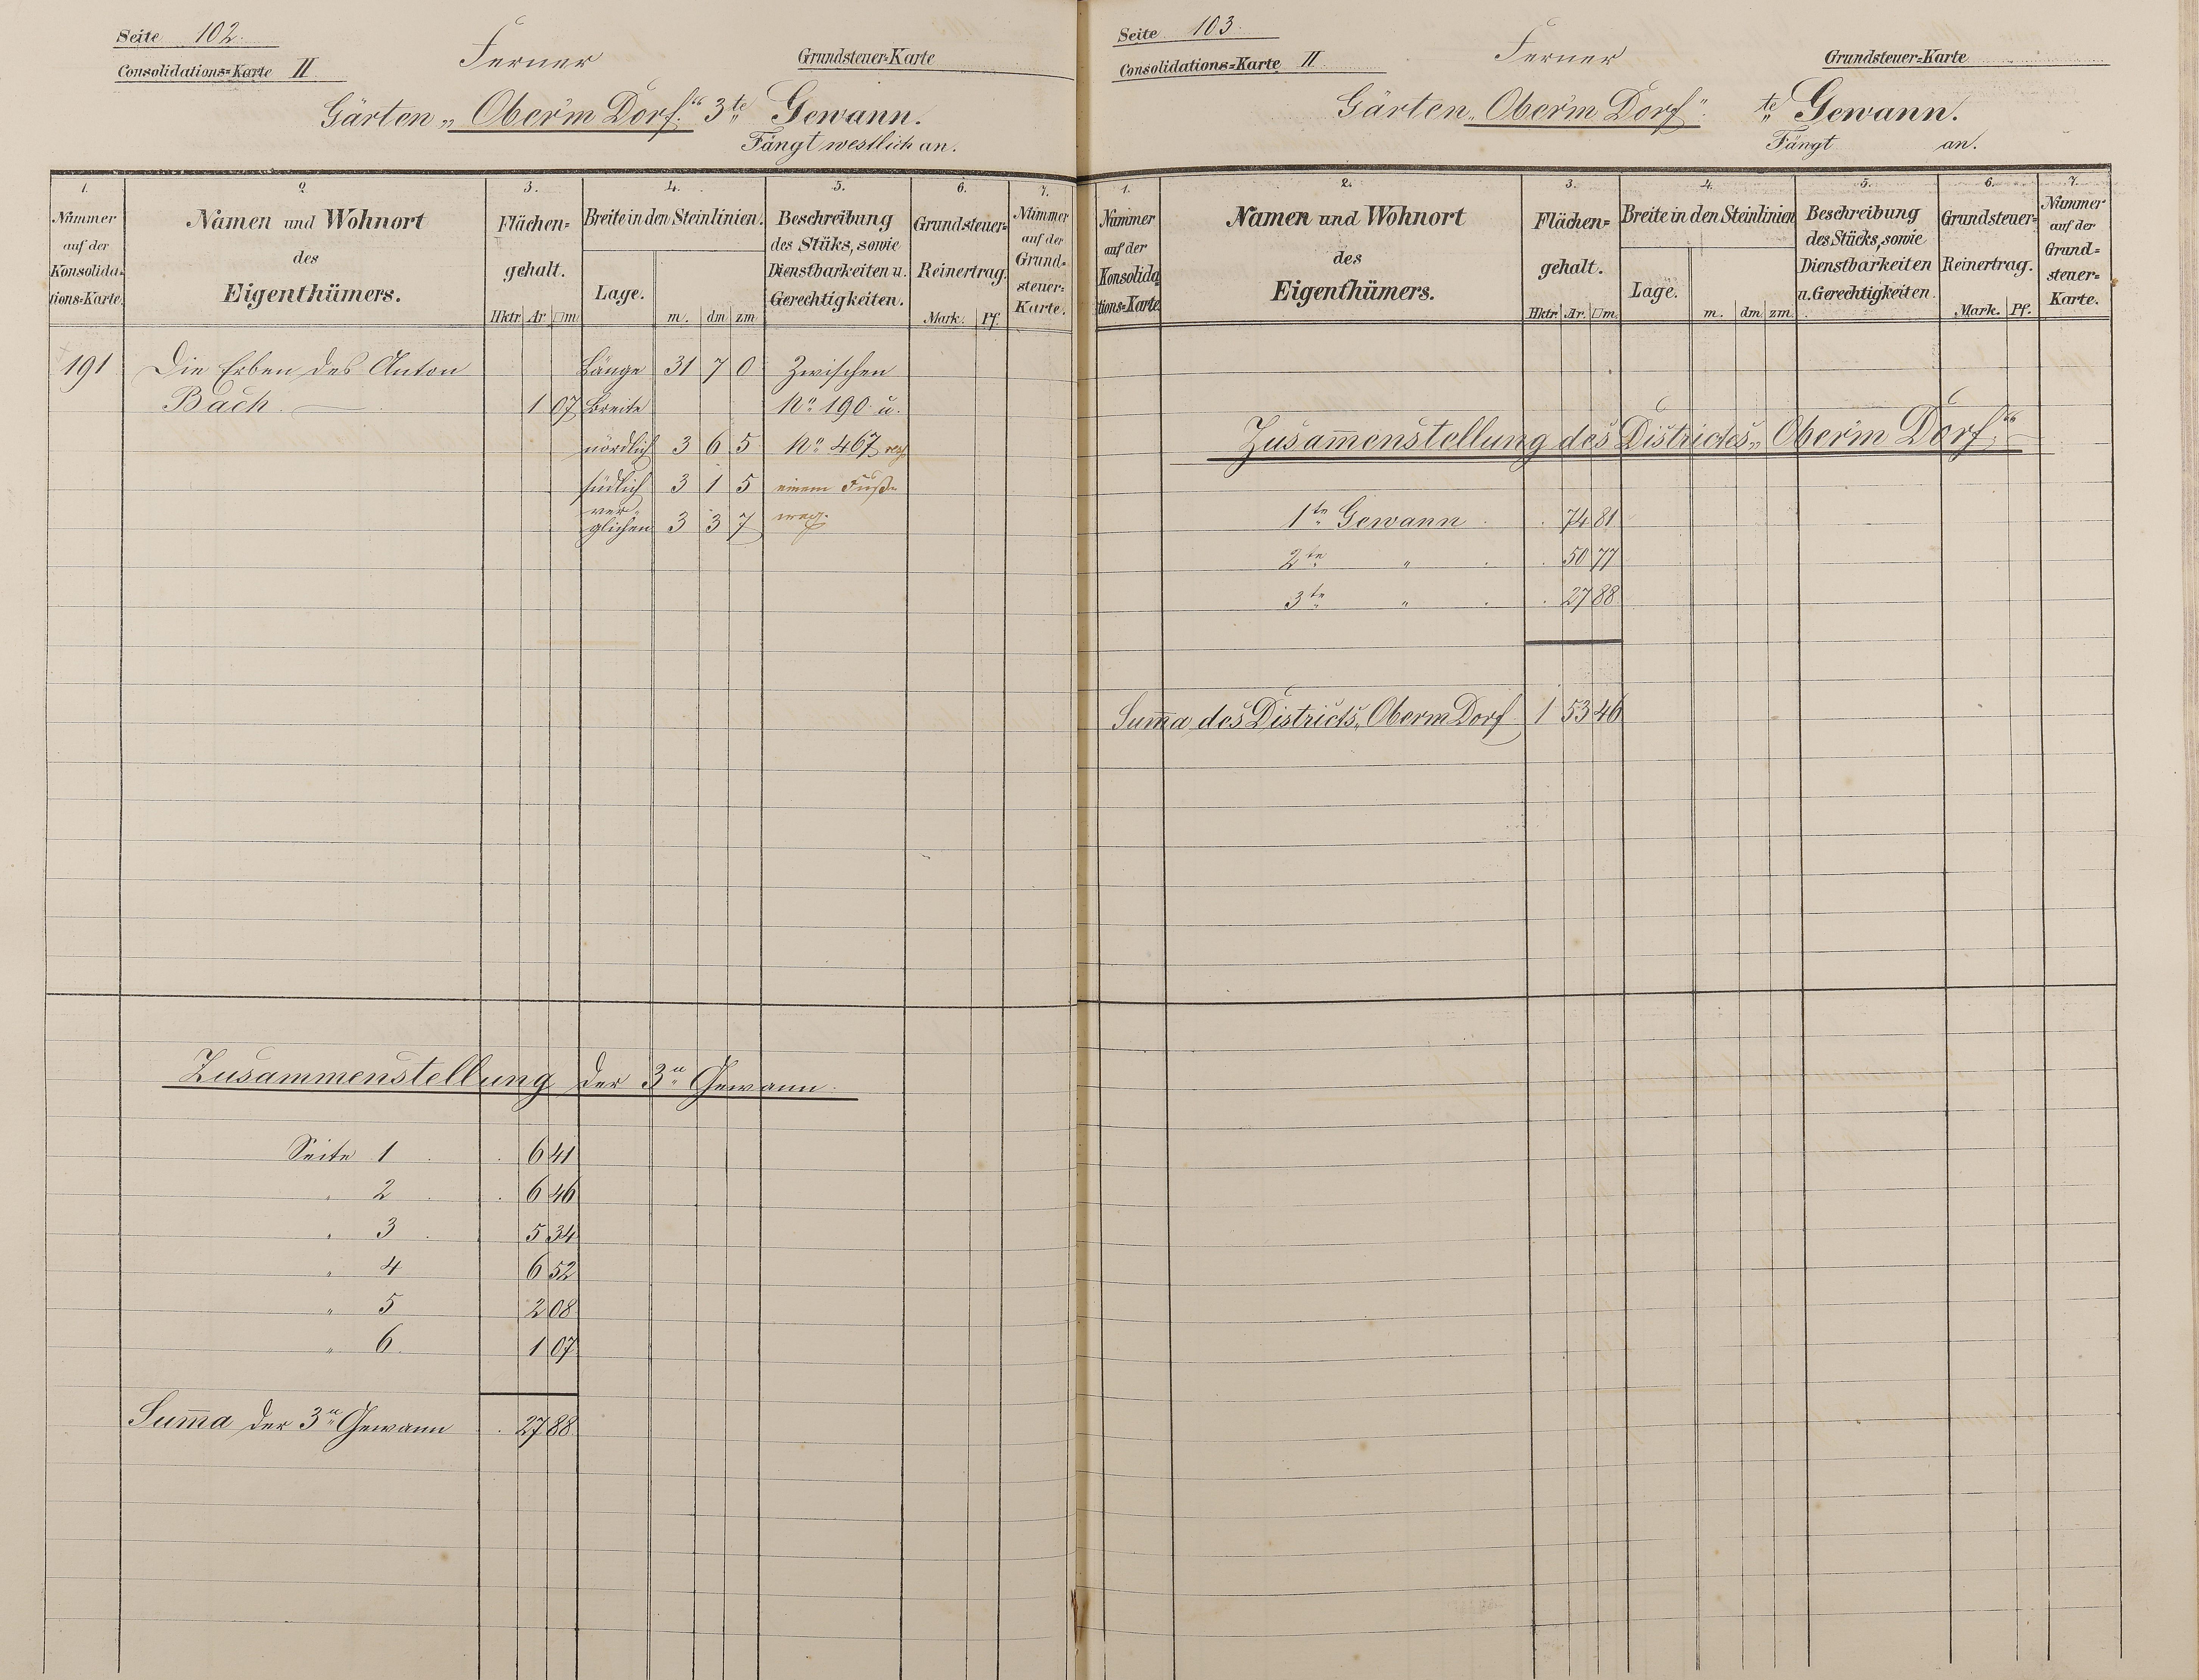 Seite 102.
Consolidations=Karte II
Ferner
Grundsteuer=Karte
Gärten „Ober'm Dorf.“ 3te Gewann.
Fängt westlich an.
1. 2. 3. 4. 5. 6. 7.
Nummer auf der Konsolida=tions=Karte.
Namen und Wohnort des Eigenthümers.
Flächen=gehalt.
Hktr Ar □m
Breite in den Steinlinien.
Lage. m. dm zm
Beschreibung des Stüks, sowie Dienstbarkeiten u. Gerechtigkeiten.
Grundsteuer=Reinertrag.
Mark. Pf.
Nummer auf der Grund=steuer=Karte.
191 Die Erben des Anton Länge 31 7 0 Zwischen
Bach. 1 07 Breite No 190 u.
nördlich 3 6 5 No 467 resp
südlich 3 1 5 einem Fuß=
ver=
glichen 3 3 7 weg.
Zusammenstellung der 3n Gewann.
Seite 1 . . 6 41
„ 2 . . 6 46
„ 3 . 5 34
„ 4 6 52
„ 5 2 08
„ 6. 1 07
Suma der 3n Gewann . 27 88
Seite 103.
Consolidations=Karte II
Ferner
Grundsteuer=Karte
Gärten „Ober'm Dorf“. te Gewann.
Fängt an.
1. 2. 3. 4. 5. 6. 7.
Nummer auf der Konsolida=tions=Karte
Namen und Wohnort des Eigenthümers.
Flächen=gehalt.
Hktr. Ar. □m.
Breite in den Steinlinien
Lage. m. dm zm.
Beschreibung des Stücks, sowie Dienstbarkeiten u. Gerechtigkeiten.
Grundsteuer=Reinertrag.
Mark. Pf.
Nummer auf der Grund=steuer=Karte.
Zusam̄enstellung des Districtes „Ober'm Dorf“
1te Gewann . . 74 81
2te „ . . 50 77
3te „ . . 27 88
Sum̄a des Districts „Oberm Dorf 1 53 46